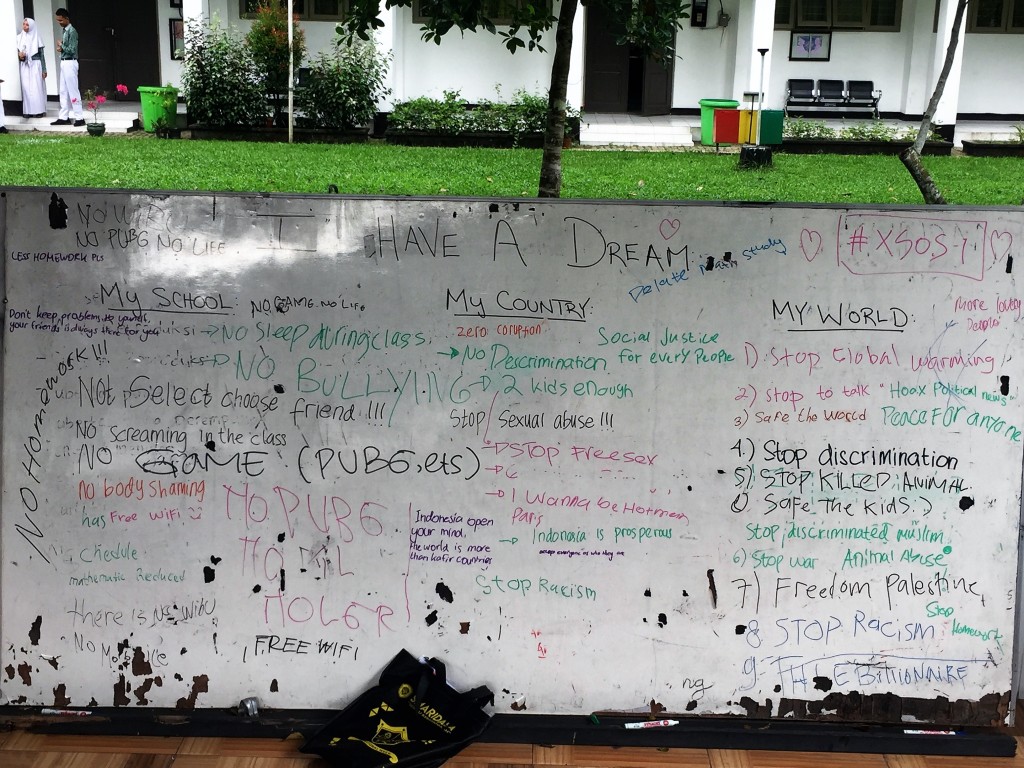 NO WIFI
NO PUBG NO LIFE
LESS HOMEWORK PLS
I HAVE A DREAM
Delate Math Study
#XSOS 1
My SCHOOL:
NO GAME NO LIFE
Don't keep problem to yourself,
your friends is always there for you
→ NO Sleep during class.
→ NO BULLYING
NO Homework!!!
Not Select choose
friend !!!
NO screaming in the class
NO GAME (PUBG, ets)
No body shaming
has Free WiFi
NO PUBG
NO ML
NO LER
schedule
mathematic Reduced
there is No WIBU
No Mobile
FREE WIFI
My COUNTRY:
"zero coruption"
→ No Descrimination
Social Justice
for every People
→ 2 kids enough
Stop Sexual abuse !!!
STOP Freesex
→ I Wanna be Hotman
Paris
→ Indonasia is prosperous
accept everyone as who they are
Indonesia open
your mind,
the world is more
than kafir countries
Stop Racism
MY WORLD:
more lovely
people
1) Stop Global warming
2) stop to talk "Hoax Political news"
3) Safe the world
Peace For anyone
4.) Stop discrimination
5) STOP KILLED ANIMAL
Safe the kids :)
Stop discriminated muslim
6) Stop war
Animal Abuse
7) Freedom Palestine
Stop
Homework
8 STOP Racism
9. THE BILLIONAIRE
ng